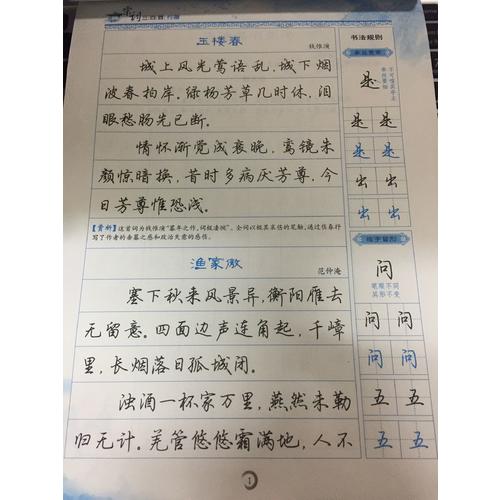 宋词三百首 行楷
玉楼春
钱惟演
城上风光莺语乱,城下烟
波春拍岸。绿杨芳草几时休,泪
眼愁肠先已断。
情怀渐觉成衰晚,鸾镜朱
颜惊暗换,昔时多病厌芳尊,今
日芳尊惟恐浅。
【赏析】这首词为钱惟演“暮年之作,词极凄惋”。全词以极其哀伤的笔触,通过伤春抒
写了作者的垂暮之感和政治失意的感伤。
渔家傲
范仲淹
塞下秋来风景异,衡阳雁去
无留意。四面边声连角起,千嶂
里,长烟落日孤城闭。
浊酒一杯家万里,燕然未勒
归无计。羌管悠悠霜满地,人不
书法规则
是
是 是
是 是
出 出
出 出
问
笔顺不同
其形不变
问 问
问 问
五 五
五 五
1